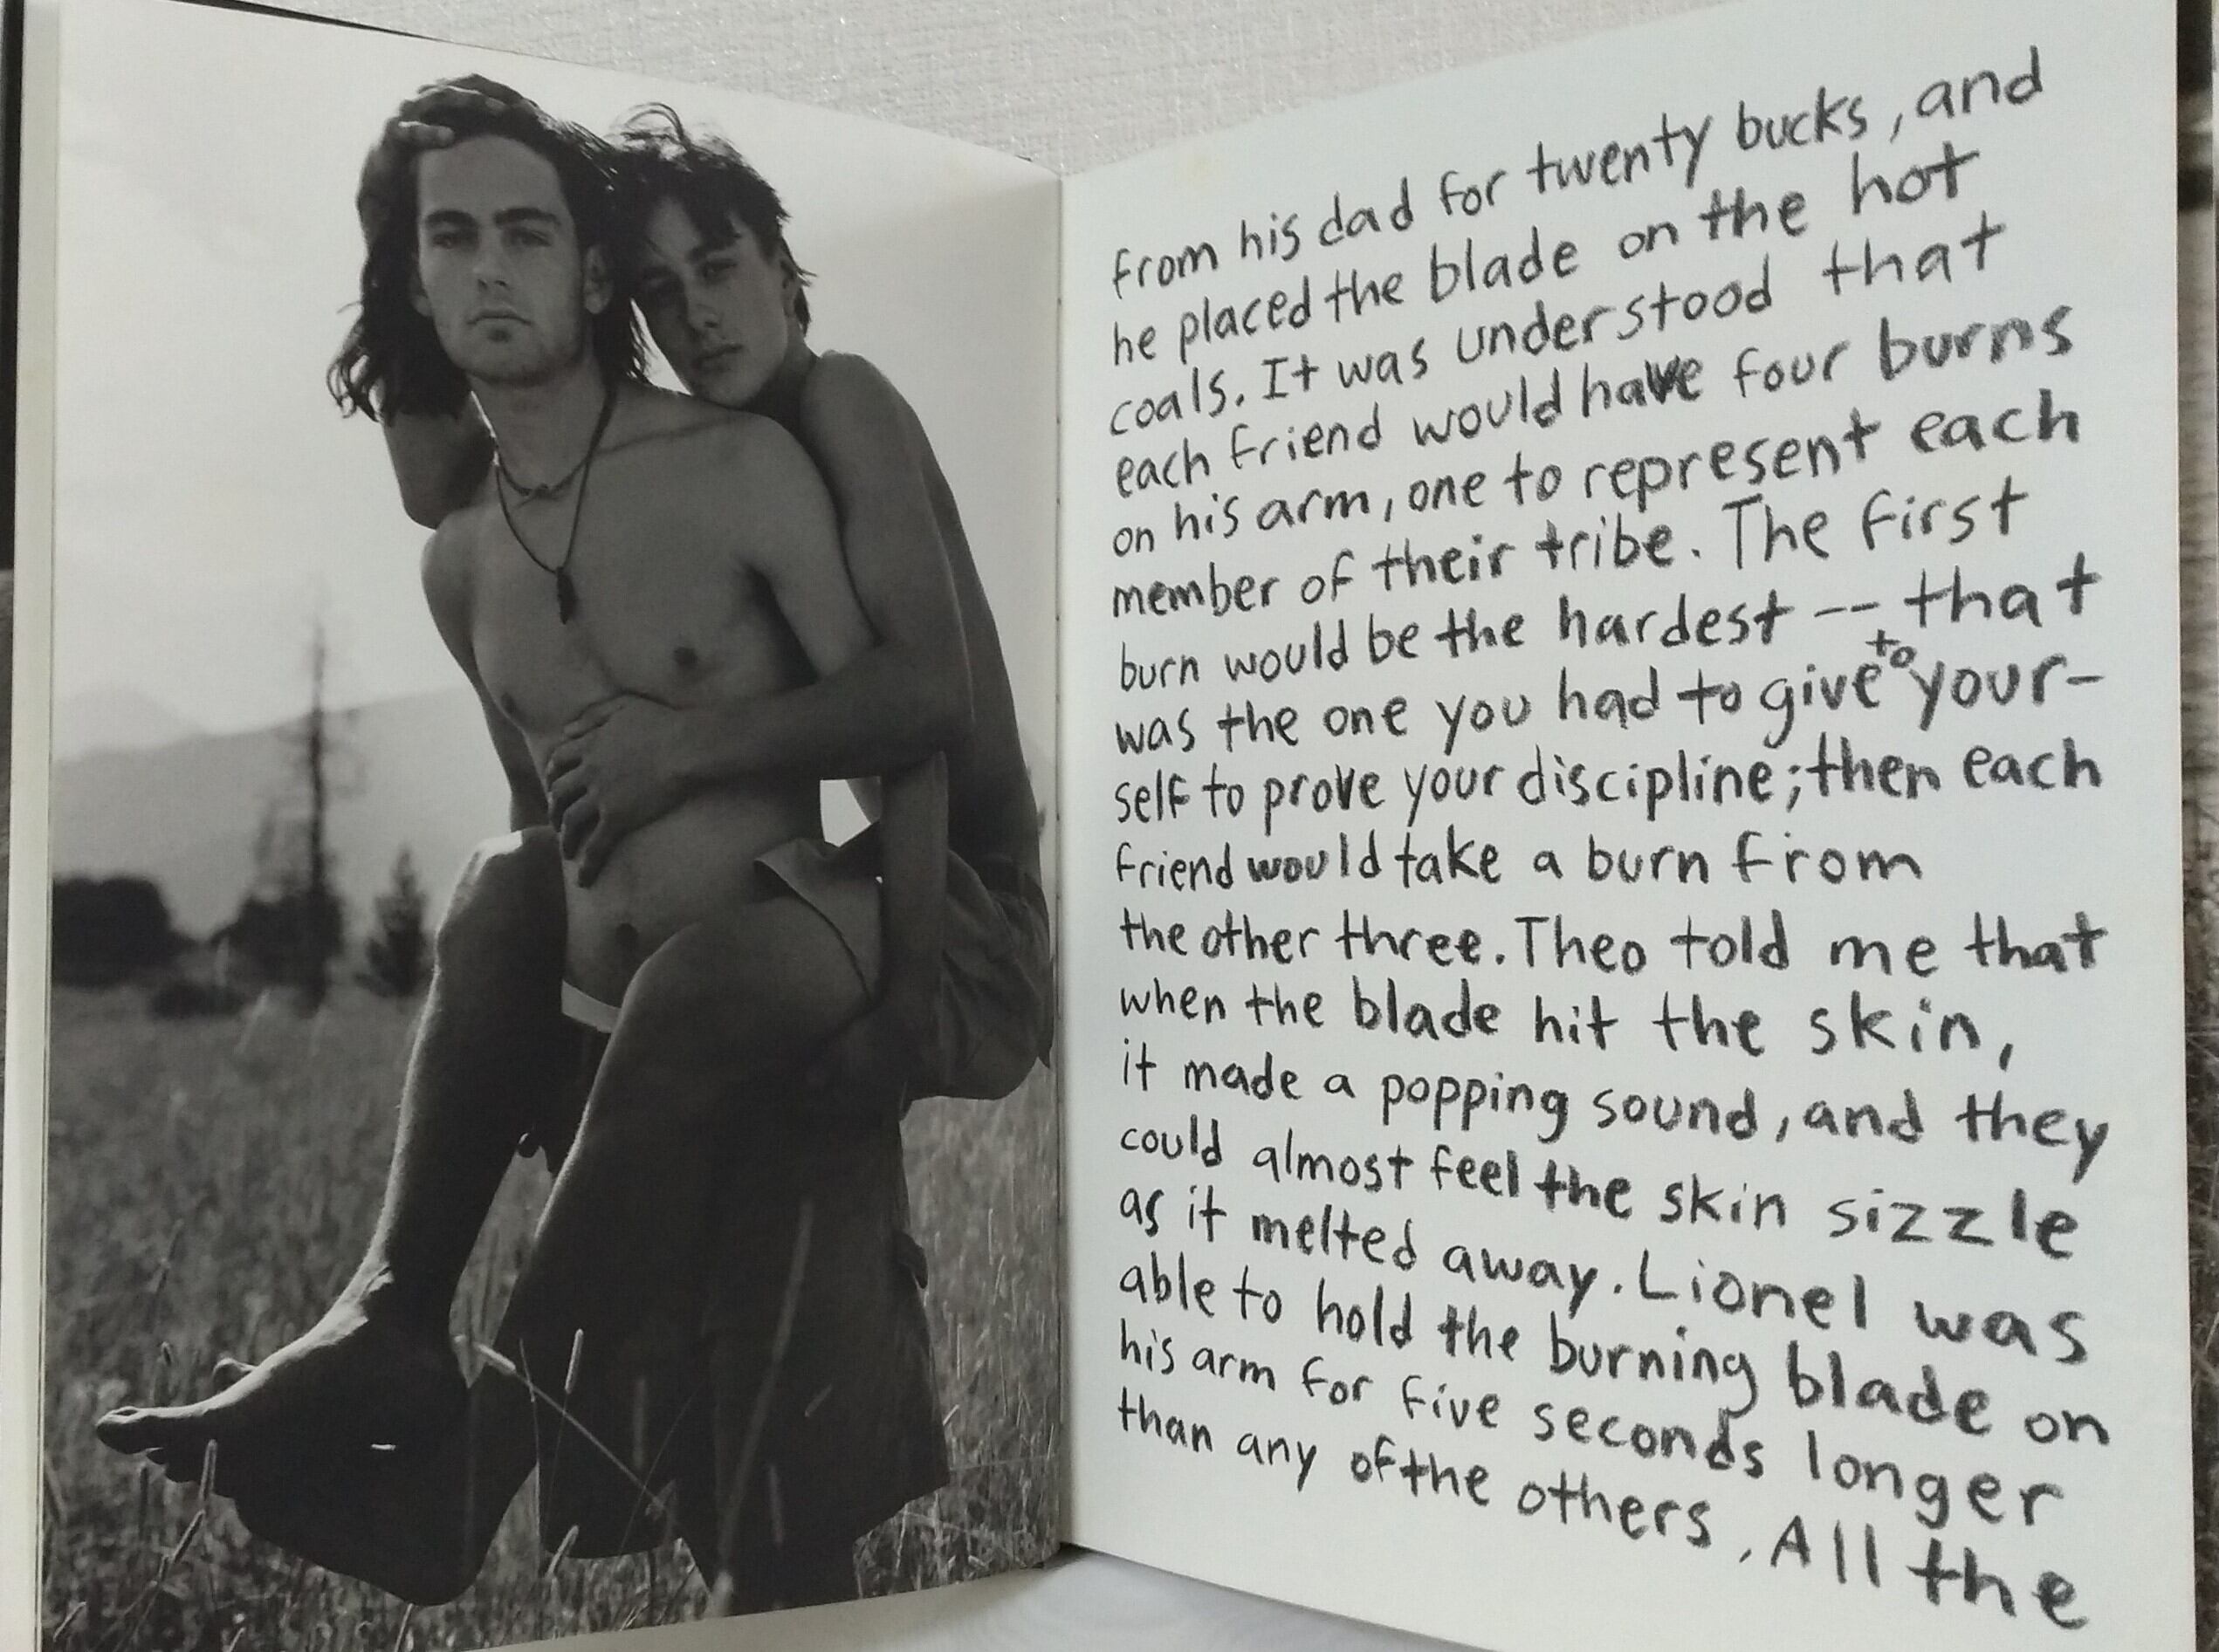 from his dad for twenty bucks, and
he placed the blade on the hot
coals. It was understood that
each friend would have four burns
on his arm, one to represent each
member of their tribe. The first
burn would be the hardest -- that
was the one you had to give to your-
self to prove your discipline; then each
friend would take a burn from
the other three. Theo told me that
when the blade hit the skin,
it made a popping sound, and they
could almost feel the skin sizzle
as it melted away. Lionel was
able to hold the burning blade on
his arm for five seconds longer
than any of the others. All the